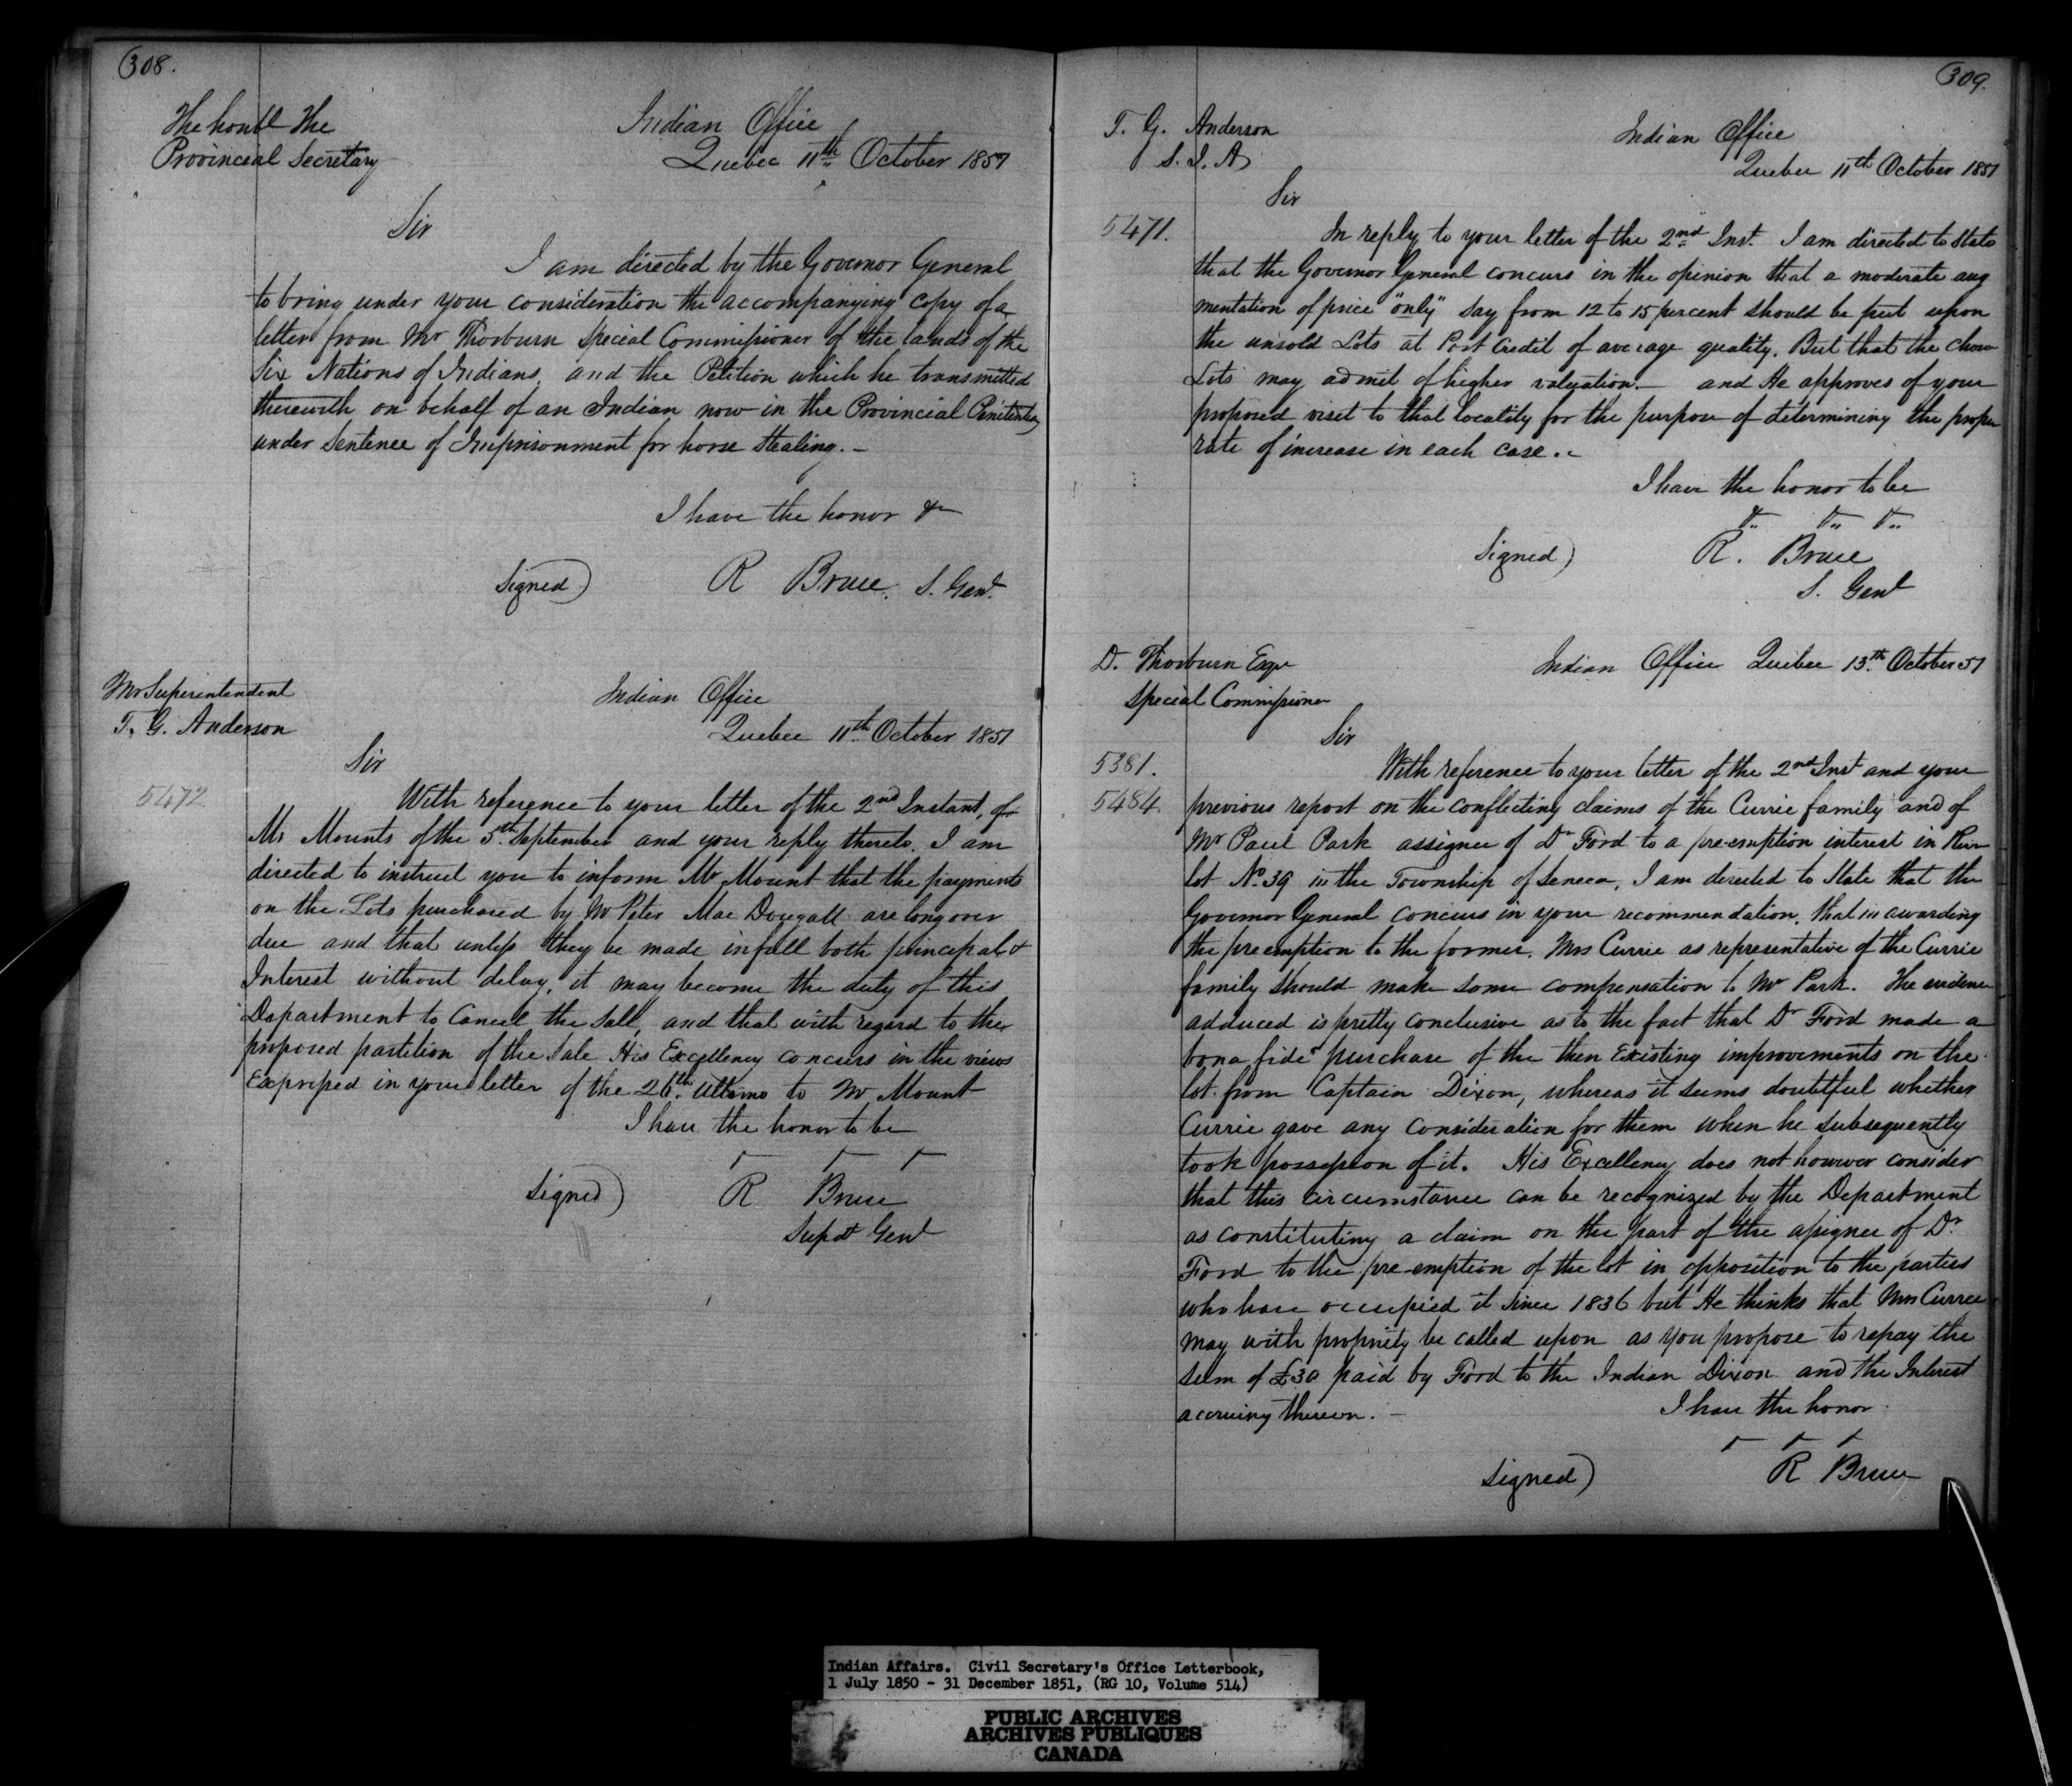 308.
The honbl The
Provincial Secretary
Indian Office
Quebec 11th October 1851
Sir
I am directed by the Governor General
to bring under your consideration the accompanying copy of a
letter from Mr Thorburn Special Commissioner of the lands of the
Six Nations of Indians, and the Petition which he transmitted
therewith on behalf of an Indian now in the Provincial Penitentiary
under Sentence of Imprisonment for horse Stealing. -
I have the honor &c
Signed) R Bruce. S. Genl.
Mr Superintendent
T. G. Anderson
Indian Office
Quebec 11th October 1851
Sir
5472
With reference to your letter of the 2nd Instant, of
Mr Mounts of the 5th September and your reply thereto. I am
directed to instruct you to inform Mr Mount that the payments
on the Lots purchased by Mr Peter Mac Dougall are long over
due and that unless they be made in full both principal &
Interest without delay, it may become the duty of this
Department to Cancel the Sale, and that with regard to the
proposed partition of the Sale His Excellency concurs in the views
Expressed in your letter of the 26th Ultimo to Mr Mount
I have the honor to be
Signed) R Bruce
Supdt Genl
309.
T. G. Anderson
S. I. A
Indian Office
Quebec 11th October 1851
Sir
5471.
In reply to your letter of the 2nd Inst. I am directed to State
that the Governor General concurs in the opinion that a moderate aug
mentation of price "only" Say from 12 to 15 percent should be put upon
the unsold Lots at Port Credit of average quality. But that the
Lots may admit of higher valuation. - and He approves of your
proposed visit to that locality for the purpose of determining the proper
rate of increase in each case. -
I have the honor to be
&c. &c. &c.
Signed) R. Bruce
S. Genl
D. Thorburn Esqr
Special Commissioner
Indian Office Quebec 13th October 51
Sir
5381.
5484.
With reference to your letter of the 2nd Inst and your
previous report on the conflicting claims of the Currie family and of
Mr Paul Park assignee of Dr Ford to a pre-emption interest in River
lot No. 39 in the Township of Seneca, I am directed to State that the
Governor General concurs in your recommendation, that in awarding
the preemption to the former, Mrs Currie as representative of the Currie
family should make some compensation to Mr Park. The evidence
adduced is pretty conclusive as to the fact that Dr Ford made a
"bona fide" purchase of the then Existing improvements on the
lot from Captain Dixon, whereas it seems doubtful whether
Currie gave any consideration for them when he subsequently
took possession of it. His Excellency does not however consider
that this circumstance can be recognized by the Department
as constituting a claim on the part of the assignee of Dr
Ford to the pre-emption of the lot in opposition to the parties
who have occupied it Since 1836 but He thinks that Mrs Currie
may with propriety be called upon as you propose to repay the
sum of £30 paid by Ford to the Indian Dixon and the Interest
accruing thereon. -
I have the honor
Signed) R Bruce
Indian Affairs. Civil Secretary's Office Letterbook,
1 July 1850 - 31 December 1851, (RG 10, Volume 514)
PUBLIC ARCHIVES
ARCHIVES PUBLIQUES
CANADA